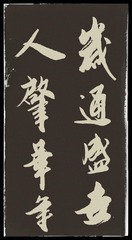 歲通盛世
人肇華年